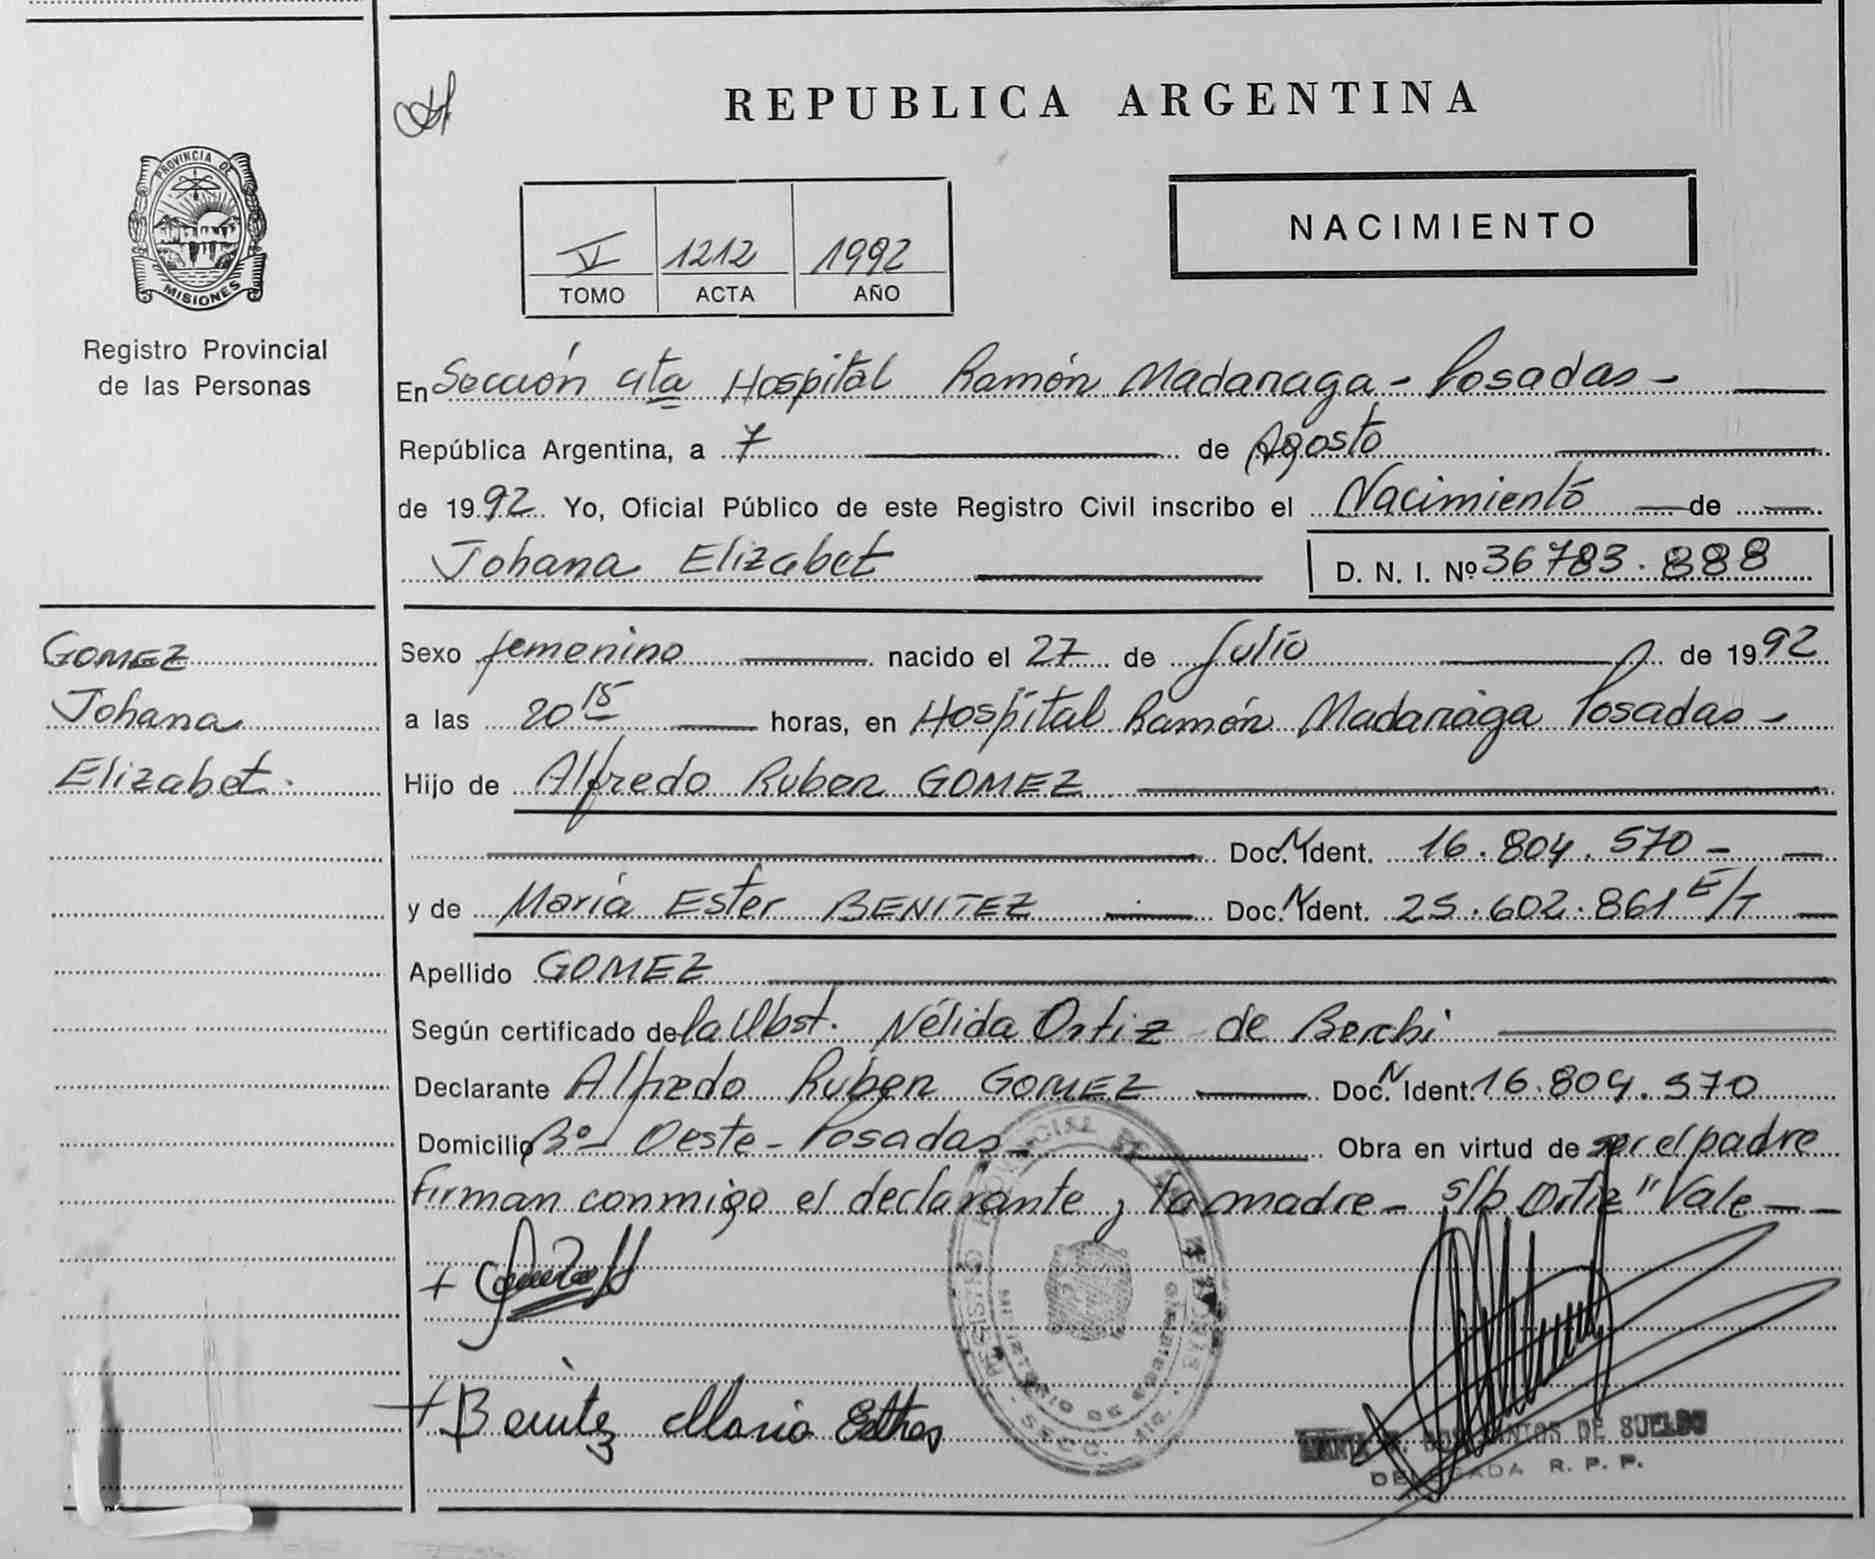 REPUBLICA ARGENTINA
PROVINCIA DE
MISIONES
Registro Provincial
de las Personas
V 1212 1992
TOMO ACTA AÑO
NACIMIENTO
En Sección 4ta Hospital Ramón Madariaga - Posadas -
República Argentina, a 7 de Agosto
de 1992 Yo, Oficial Público de este Registro Civil inscribo el Nacimiento de
Johana Elizabet D. N. I. Nº 36783.888
GOMEZ
Johana
Elizabet.
Sexo femenino nacido el 27 de Julio de 1992
a las 20 15 horas, en Hospital Ramón Madariaga Posadas -
Hijo de Alfredo Ruben GOMEZ
Doc. N Ident. 16.804.570 -
y de María Ester BENITEZ Doc. N Ident. 25.602.861 E/T
Apellido GOMEZ
Según certificado de la Obst. Nélida Ortiz de Berchi
Declarante Alfredo Ruben GOMEZ Doc. N Ident. 16.804.570
Domicilio Bº Oeste - Posadas Obra en virtud de ser el padre
Firman conmigo el declarante y la madre - s/b Ortiz " Vale -
+
+ Benitez Maria Esther
DOS SANTOS DE SUELDO
DELEGADA R. P. P.